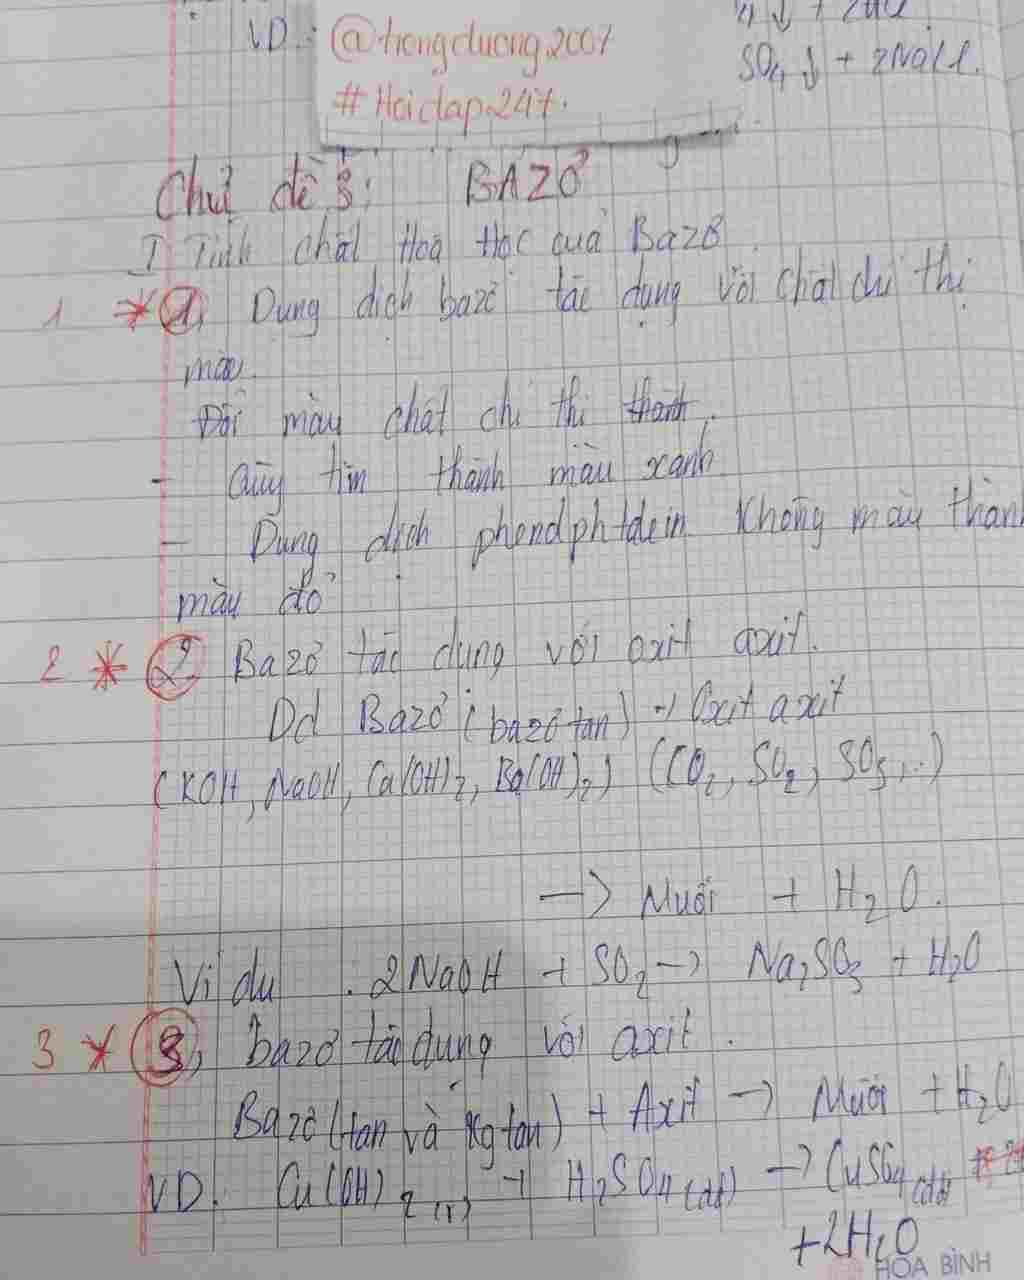 VD:
@trongduong2007
#Hoidap247.
SO4 ↓ + 2NaCl.
Chủ đề 3: BAZƠ
I Tính chất Hoá Học của Bazơ
1 * 1, Dung dịch bazơ tác dụng với chất chỉ thị
màu.
Đổi màu chất chỉ thị thành.
- Qùy tím thành màu xanh
- Dung dịch phenolphtalein không màu thành
màu đỏ
2 * 2 Bazơ tác dụng với oxit axit.
Dd Bazơ (bazơ tan) + Oxit axit
(KOH, NaOH, Ca(OH)2, Ba(OH)2) (CO2, SO2, SO3,..)
→ Muối + H2O.
Ví dụ. 2NaOH + SO2 → Na2SO3 + H2O
3 * 3, bazơ tác dụng với axit.
Bazơ (tan và kg tan) + Axit → Muối + H2O
VD. Cu(OH)2 (r) + H2SO4 (dd) → CuSO4 (dd)
+2H2O
HÒA BÌNH